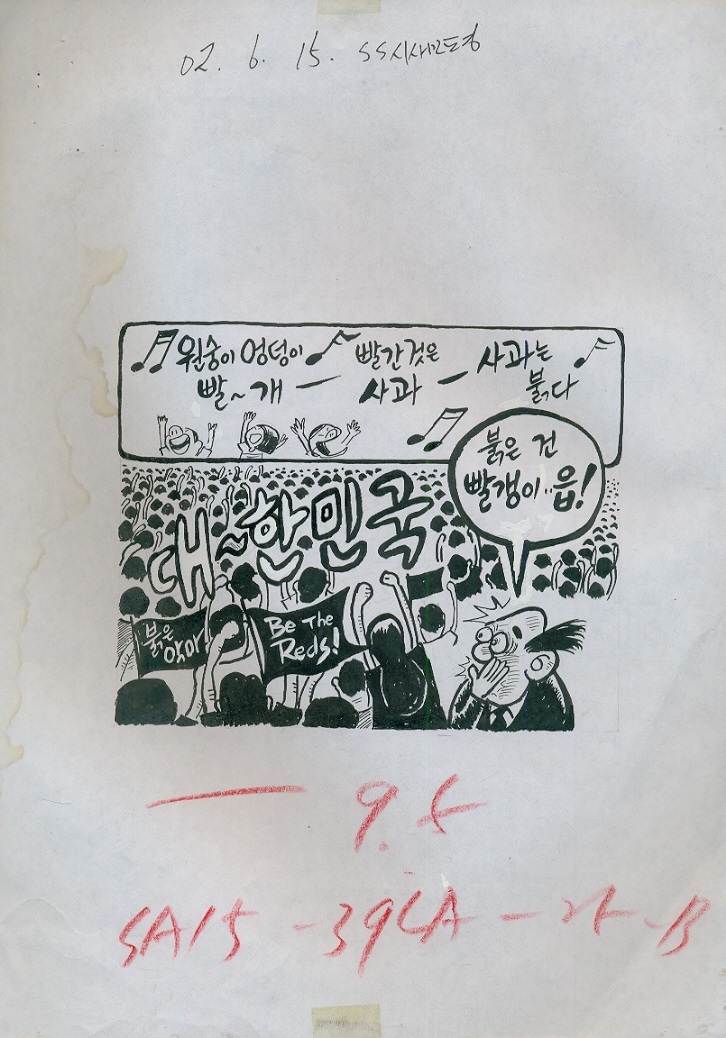 02. 6. 15. SS시사만도경
원숭이 엉덩이
빨~개 —
빨간것은
사과 —
사과는
붉다
붉은 건
빨갱이..읍!
대~한민국
붉은
악마!
Be The
Reds!
— 9.5
SA15-39